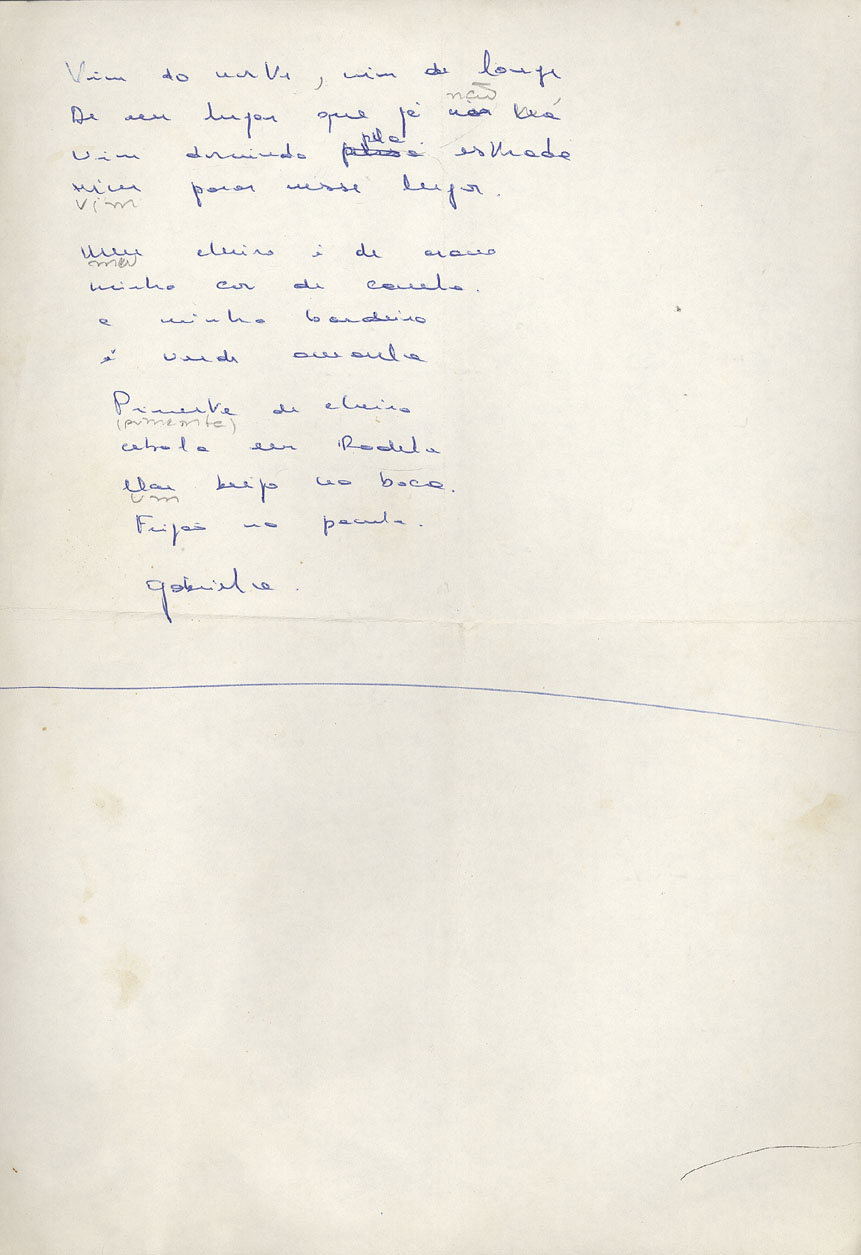 Vim do norte, vim de longe
não
De um lugar que já não há
pela
Vim dormindo pela estrada
vim parar nesse lugar.
vim
Meu cheiro é de cravo
meu
minha cor de canela.
a minha bandeira
é verde amarela
Pimenta de cheiro
(pimenta)
cebola em Rodela
Um beijo na boca.
um
Feijão na panela.
Gabriela.